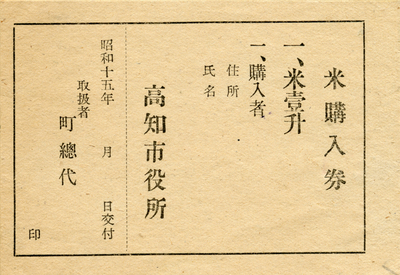 米購入券
一、米壹升
一、購入者
住所
氏名
高知市役所
昭和十五年 月 日交付
取扱者
町總代 印